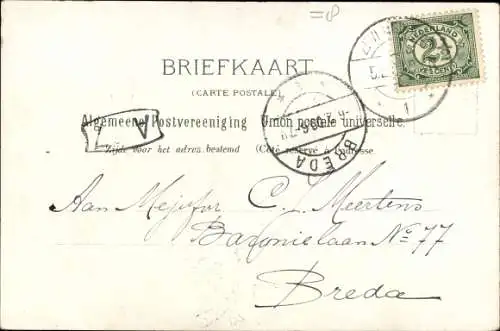 =8
NEDERLAND
2½
CENT
BRIEFKAART
(CARTE POSTALE)
Algemeene Postvereeniging Union postale universelle
Zijde voor het adres bestemd (Côté réservé à l'adresse)
A
1
BREDA
1
Aan Mejufvr C. J. Meertens
Baronielaan No 77
Breda